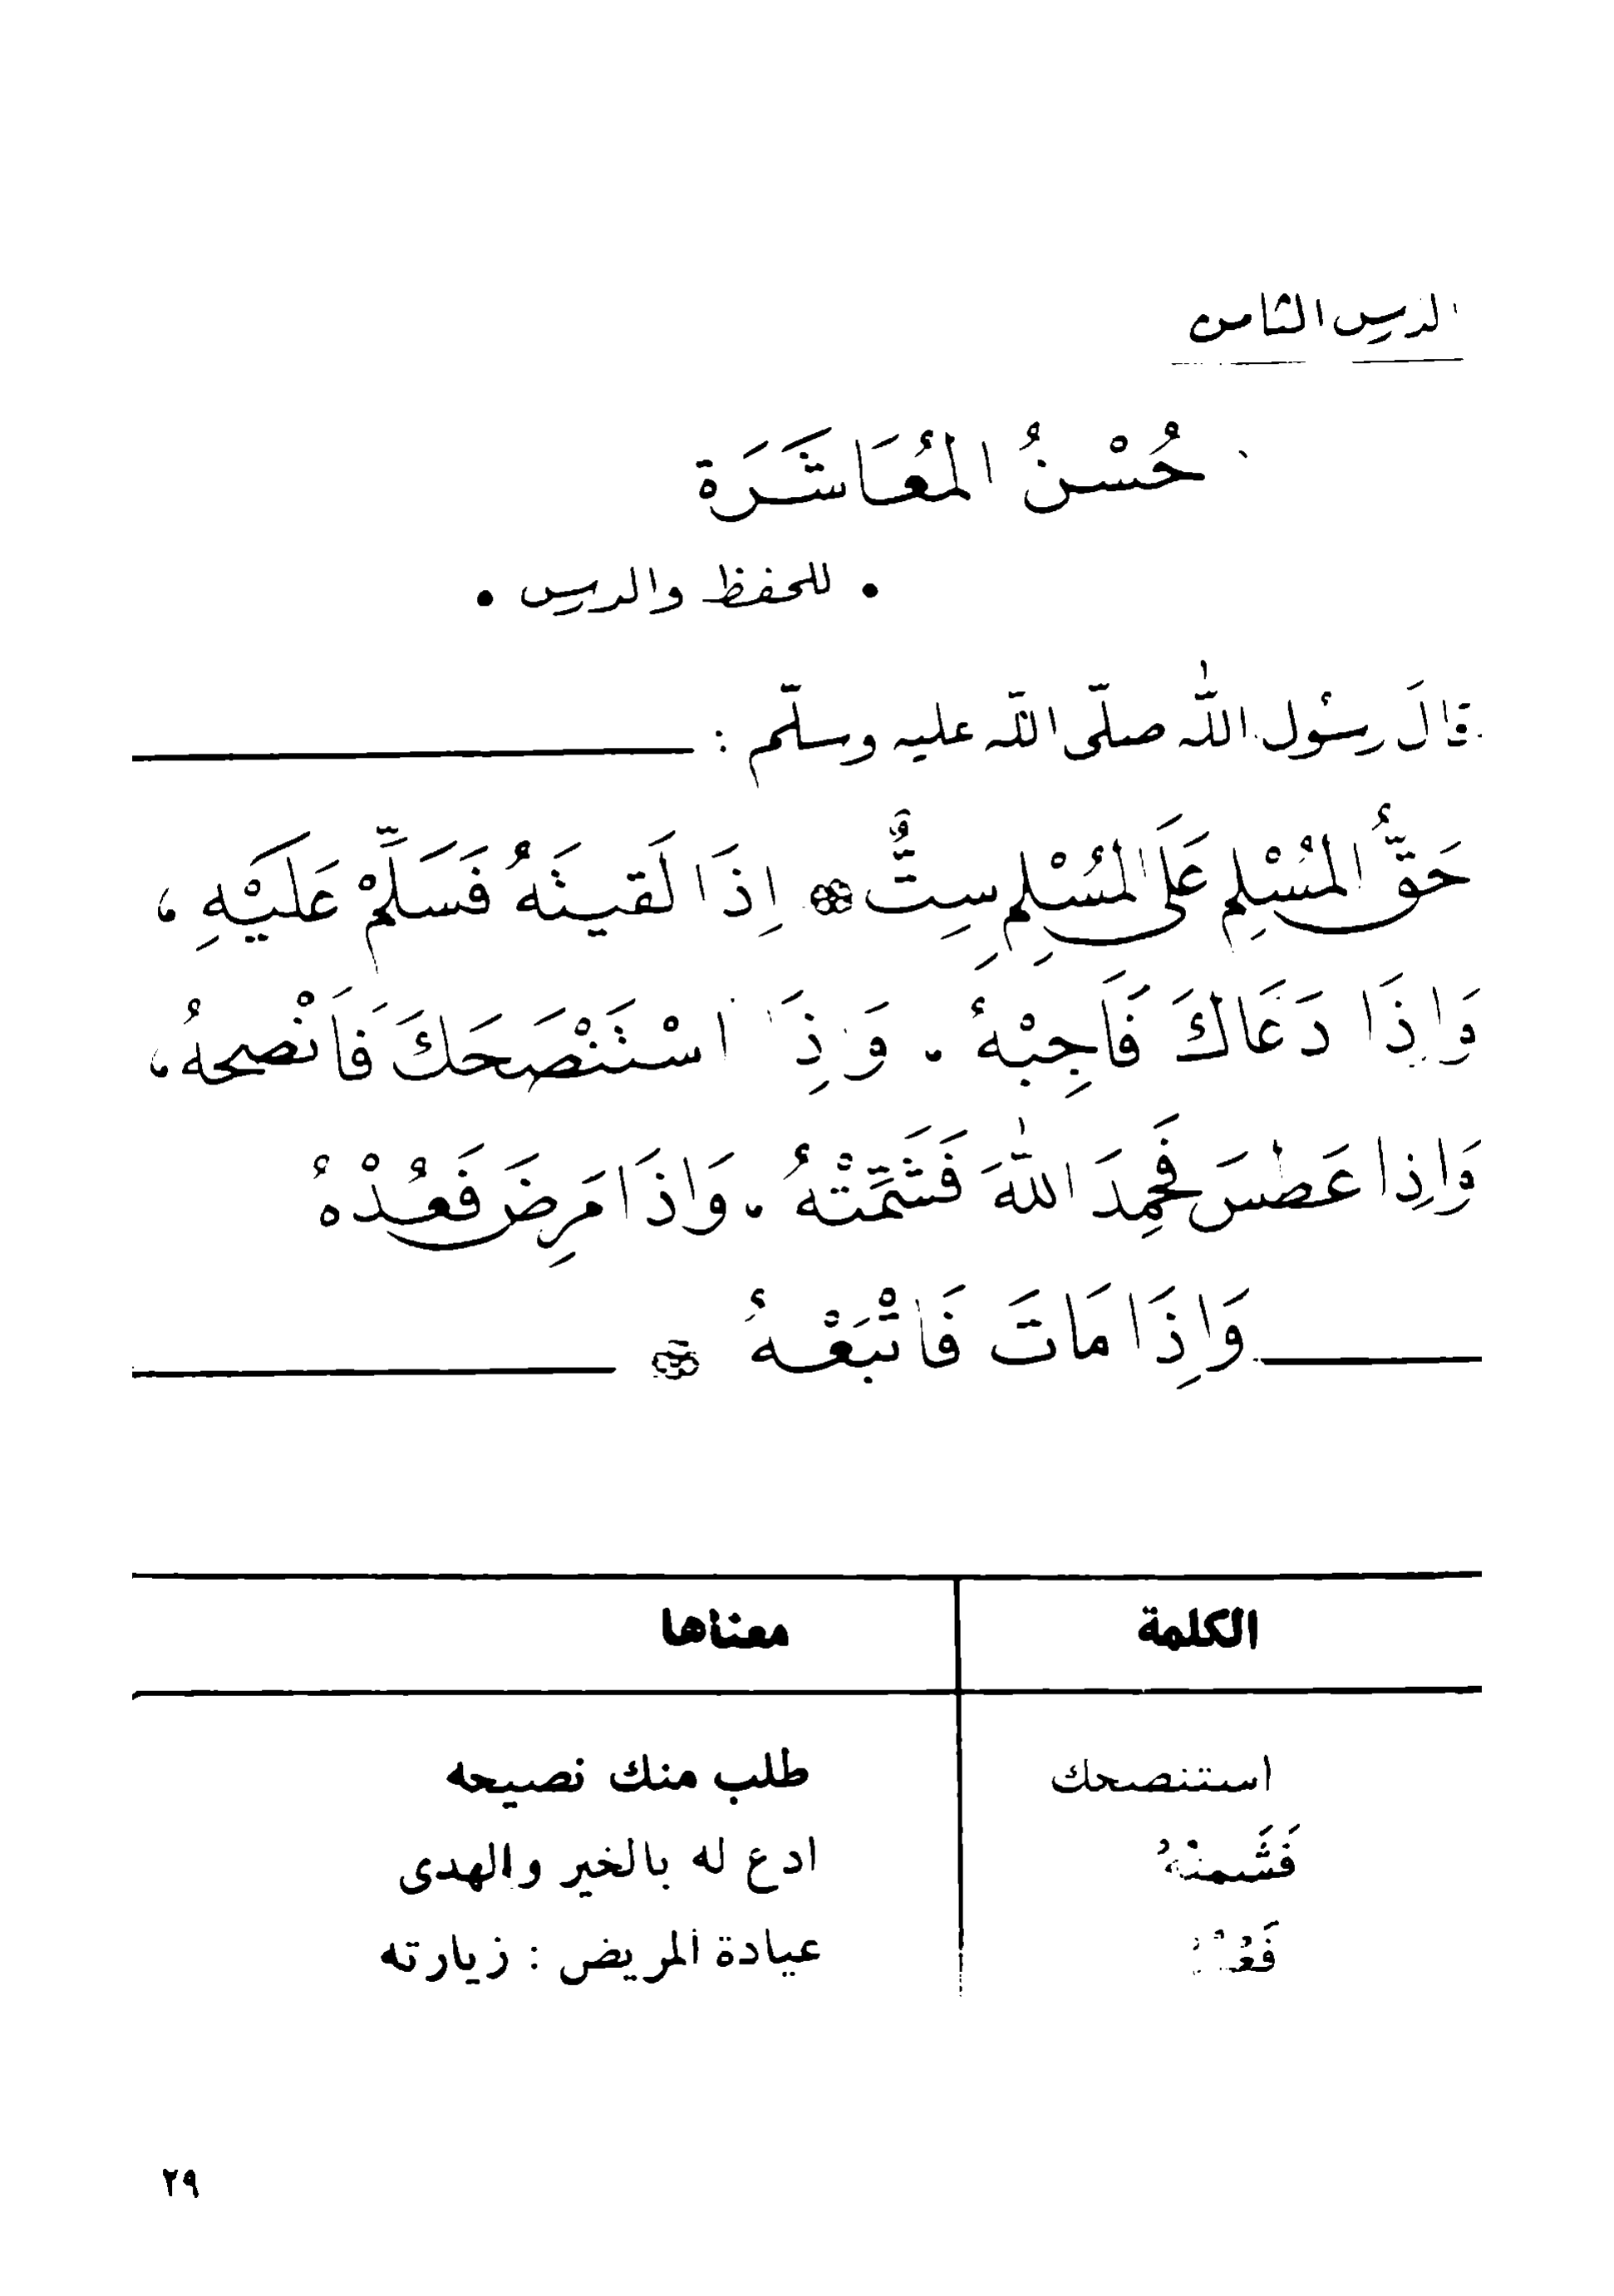 الدرس الثامن
حُسْنُ المُعَاشَرَة
• للحفظ والدرس •
قالَ رسُول الله صلّى اللّه عليه وسلّم :
حَقُّ المُسْلِمِ عَلَى المُسْلِمِ سِتٌّ إِذَا لَقيتَهُ فَسَلِّمْ عَلَيْهِ ،
وَإِذَا دَعَاكَ فَأَجِبْهُ ، وَإِذَا اسْتَنْصَحَكَ فَانْصَحهُ ،
وَإِذا عَطسَ فَحَمِدَ اللهَ فَشَمِّتْهُ ، وَإذَا مَرِضَ فَعُدْهُ
وَإِذَا مَاتَ فَاتْبَعْهُ
الكلمة معناها
استنصحك طلب منك نصيحه
فَشَمتْهُ ادع له بالخير والهدى
عيادة المريض : زيارته
٢٩